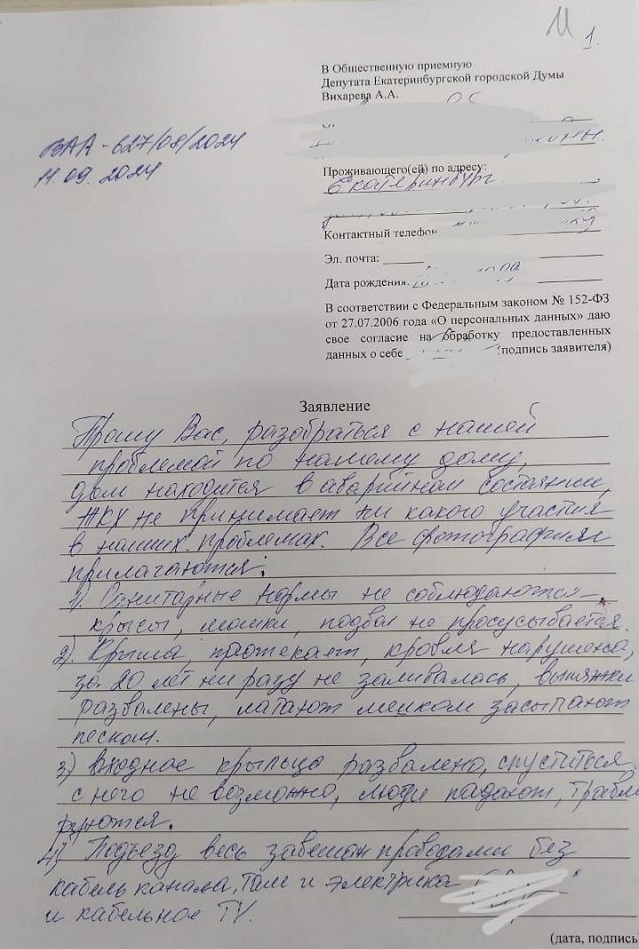 1.
В Общественную приемную
Депутата Екатеринбургской городской Думы
Вихарева А.А.
ВАА-627/08/2024
11.09.2024
Проживающего(ей) по адресу:
Екатеринбург
Контактный телефон
Эл. почта:
Дата рождения.
В соответствии с Федеральным законом № 152-ФЗ
от 27.07.2006 года «О персональных данных» даю
свое согласие на обработку предоставленных
данных о себе (подпись заявителя)
Заявление
Прошу Вас, разобраться с нашей
проблемой по нашему дому,
дом находится в аварийном состоянии,
ЖКХ не принимает ни какого участия
в наших проблемах. Все фотографии
прилагаются:
1) Санитарные нормы не соблюдаются-
крысы, мошки, подвал не просусывается.
2) Крыша протекает, кровля нарушена,
за 20 лет ни разу не заливалась, вытяжки
развалены, латают мешком засыпают
песком.
3) Входное крыльцо развалено, спуститься
с него не возможно, люди падают, травми
руются.
4) Подъезд весь завешан проводами без
кабель канала, там и электрика
и кабельное TV.
(дата, подпись